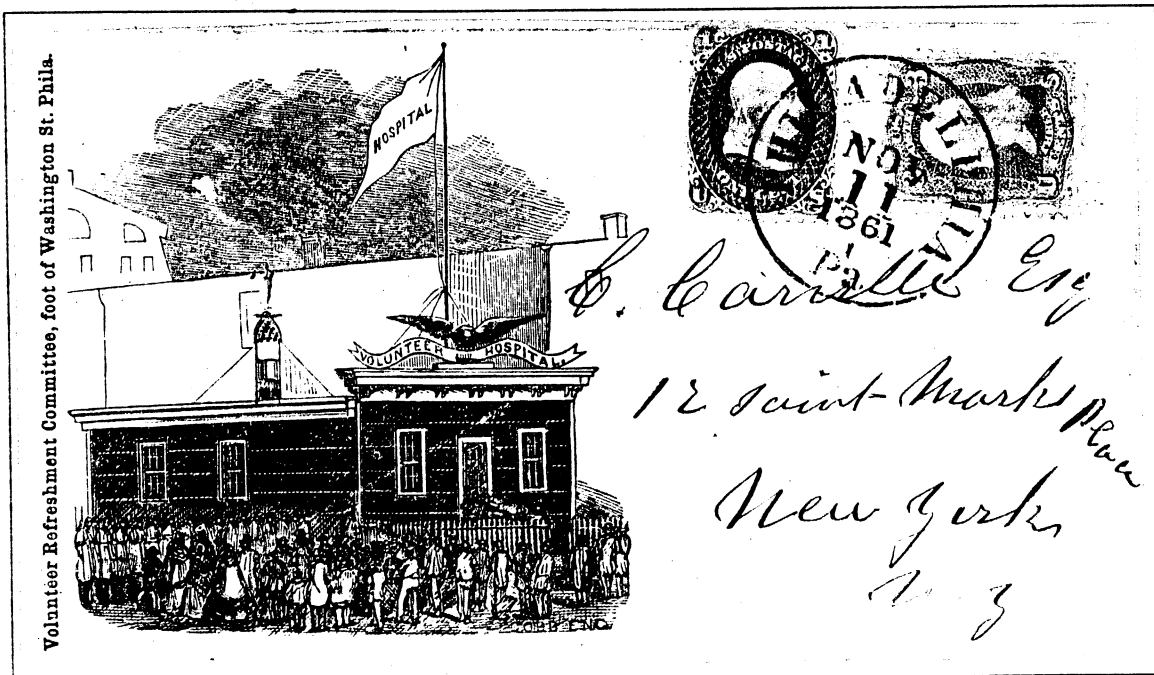 Volunteer Refreshment Committee, foot of Washington St. Phila.
HOSPITAL
VOLUNTEER HOSPITAL.
PHILADELPHIA
NOV
11
1861
Pa.
C. Esq
12 Saint Marks Place
New York
N Y